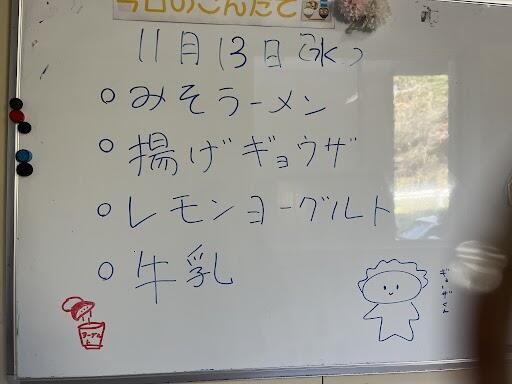 今日のこんだて
11月13日(水)
○ みそラーメン
○ 揚げギョウザ
○ レモンヨーグルト
○ 牛乳
ぎょーざくん
ヨーグルト